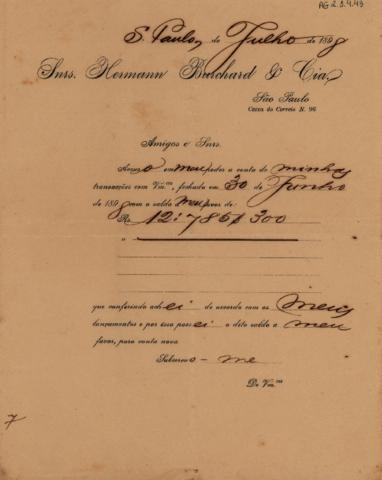 AG 2.1.4.43
S. Paulo, de Julho de 1898
Snrs. Hermann Burchard & Cia,
São Paulo
Caixa do Correio N. 96
Amigos e Snrs.
Accuso em meu poder a conta de minhas
transacções com Vm.ces, fechada em 30 de Junho
de 1898 com o saldo a meu favor de:
Rs. 12:785$300
"
que conferindo achei de accordo com os meus
lançamentos e por isso passei o dito saldo a meu
favor, para conta nova
Subscrevo-me
De Vm.ces
7